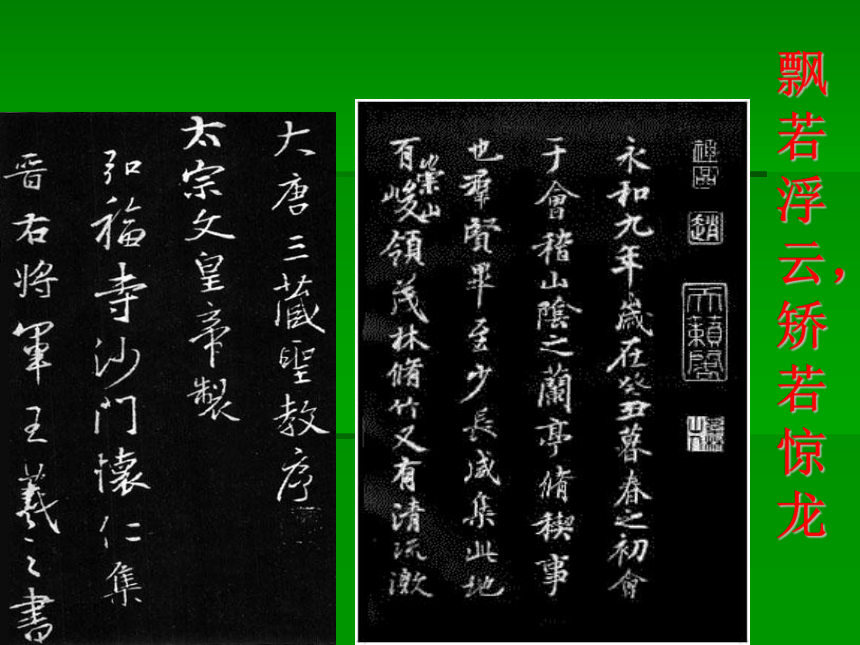 飘若浮云，矫若惊龙
天籁阁
赵
永和九年歲在癸丑暮春之初會
于會稽山陰之蘭亭脩稧事
也羣賢畢至少長咸集此地
有崇山峻領茂林脩竹又有清流激
大唐三藏聖教序
太宗文皇帝製
弘福寺沙門懷仁集
晉右將軍王羲之書